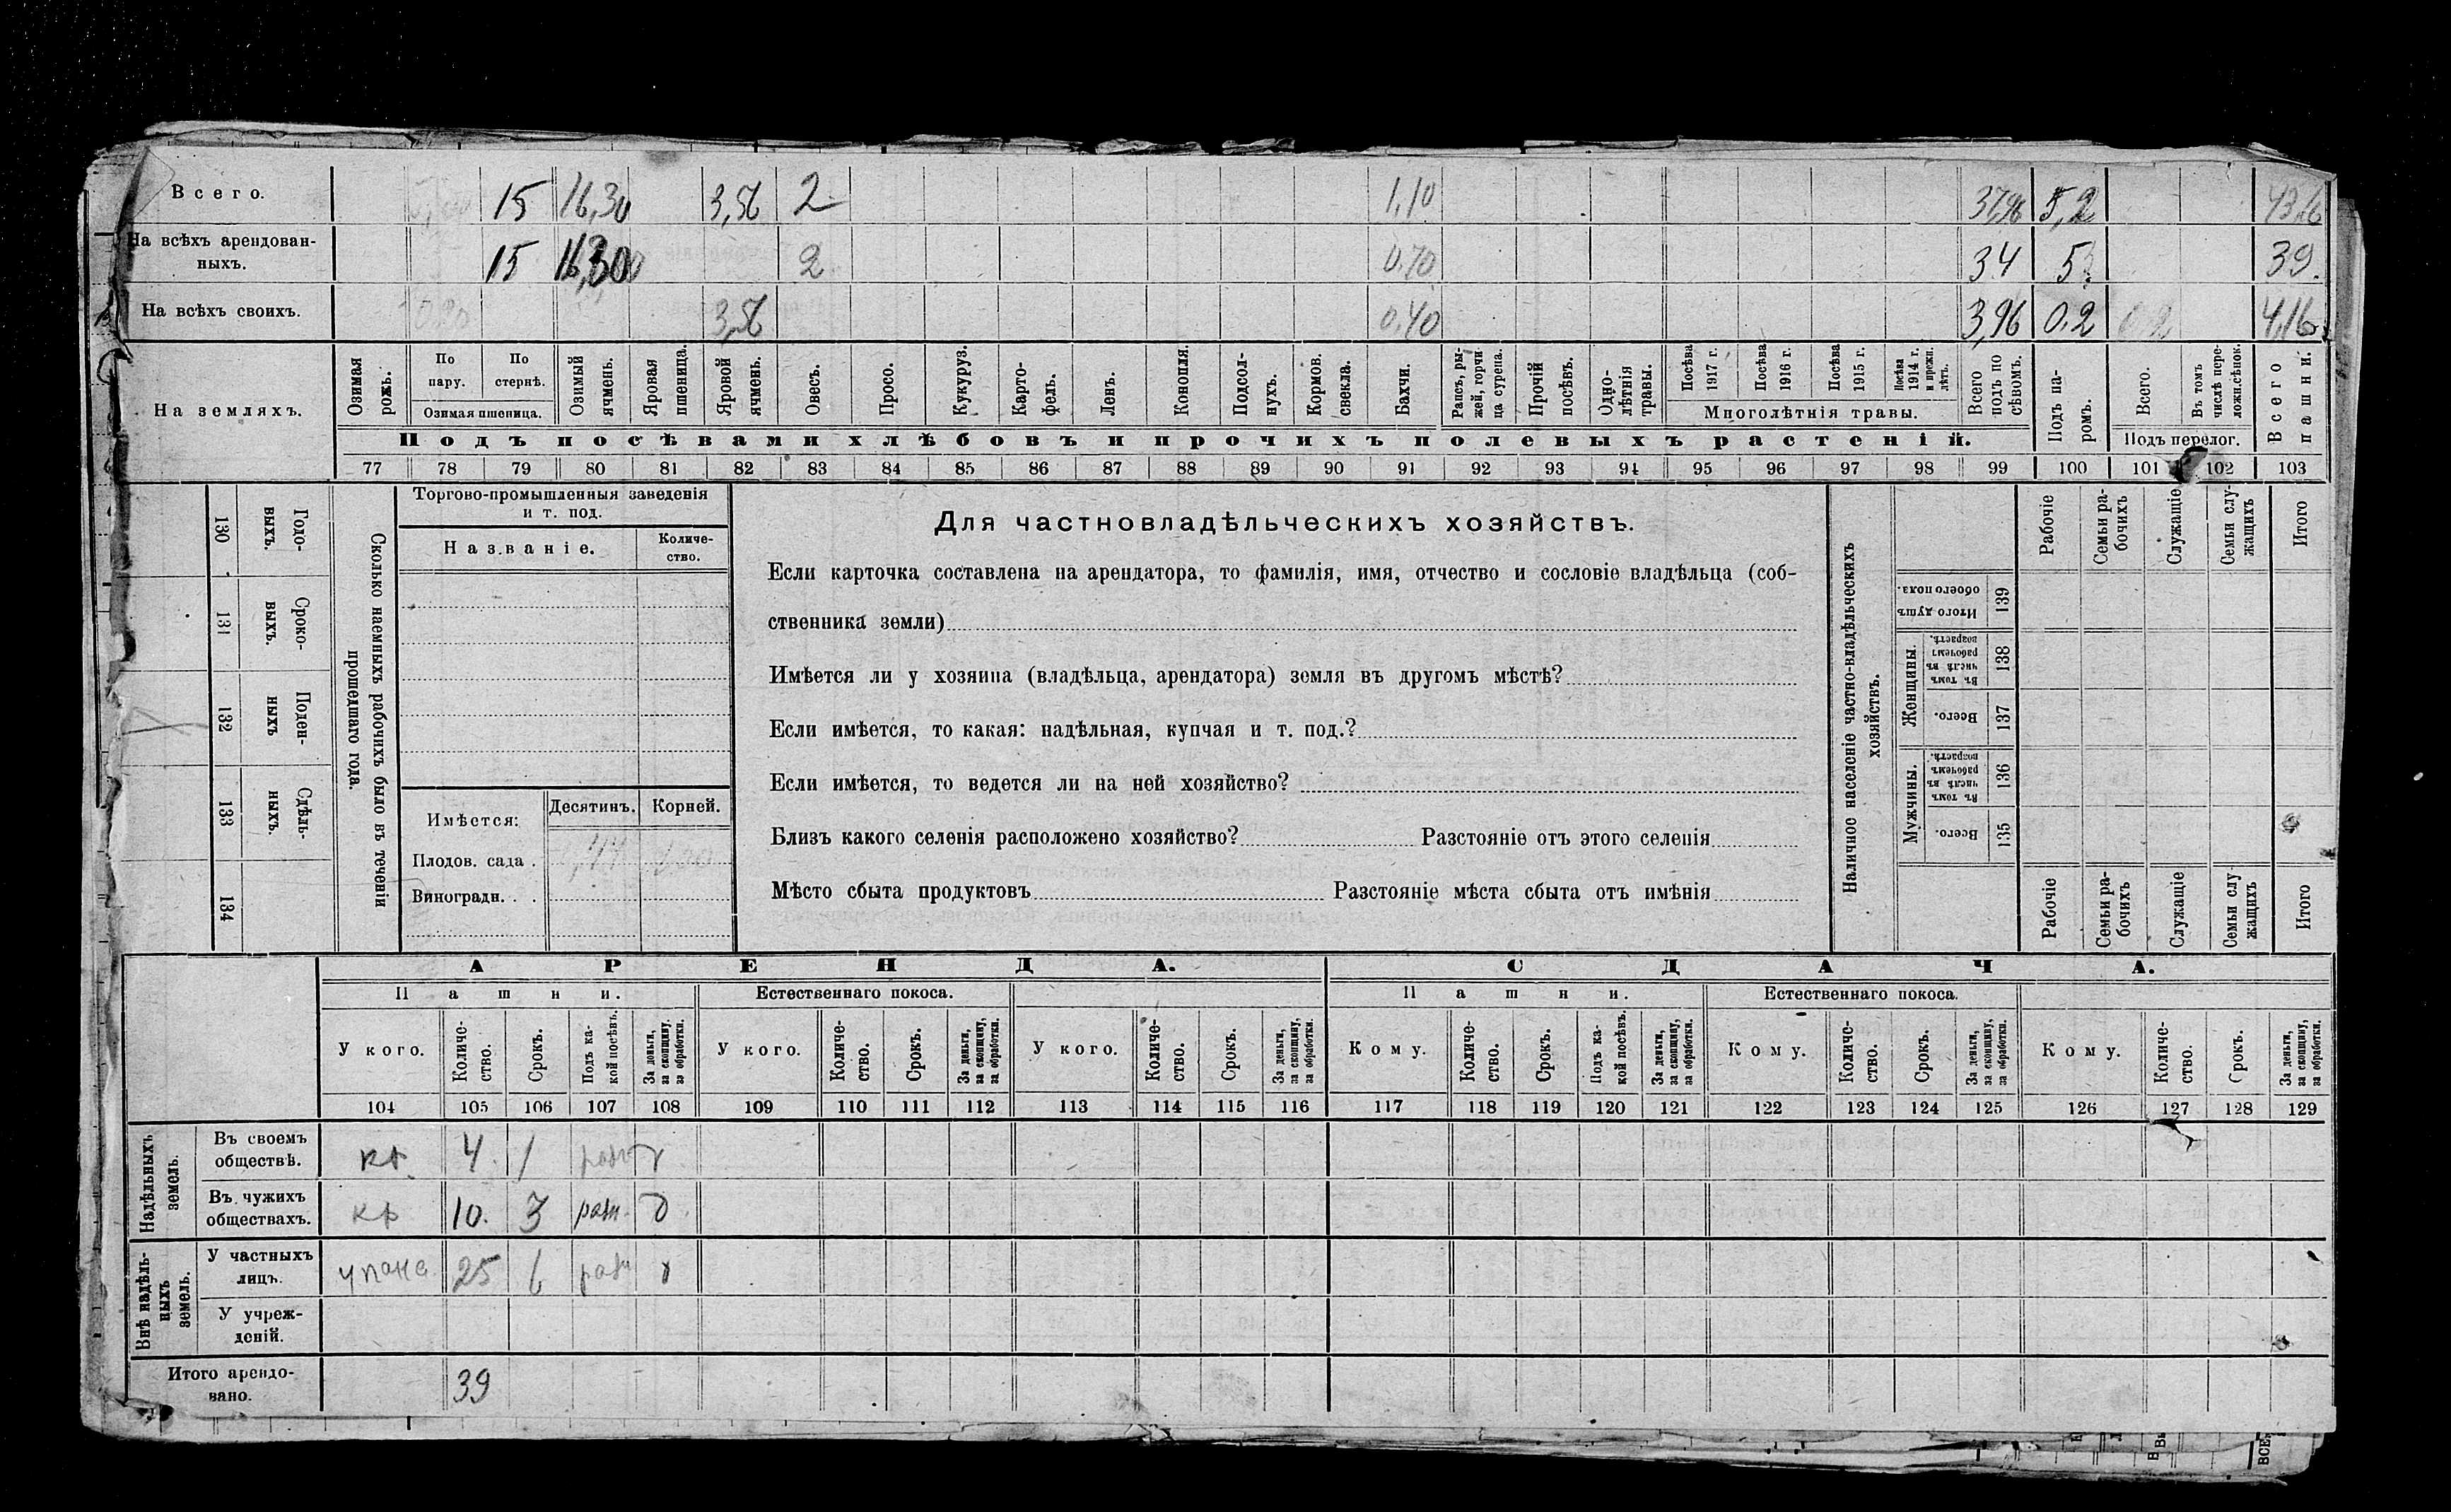 Всего. 15 16,30 3,56 2 1,10 37,96 5,2 43,16
На всѣхъ арендован-
ныхъ. 15 16,30 2 0,70 34 5 39.
На всѣхъ своихъ. 0.20 3,56 0,40 3,96 0,2 0,2 4,16
На земляхъ.
Озимая рожь.
По пару.
По стернѣ.
Озимая пшеница.
Озимый ячмень.
Яровая пшеница.
Яровой ячмень.
Овесъ.
Просо.
Кукуруз.
Карто-
фель.
Ленъ.
Конопля.
Подсол-
нухъ.
Кормов. свекла.
Бахчи.
Рапсъ, ры-
жей, горчи
ца сурепа.
Прочій посѣвъ.
Одно-
лѣтнія
травы.
Посѣва 1917 г.
Посѣва 1916 г.
Посѣва 1915 г.
Посѣва 1914 г. и прежн. лѣтъ.
Многолѣтнія травы.
Всего подъ по
сѣвомъ.
Подъ па-
ромъ.
Всего.
Въ томъ числѣ пере-
ложн.сѣнок.
Подъ перелог.
Всего пашни.
Подъ посѣвами хлѣбовъ и прочихъ полевыхъ растеній.
77 78 79 80 81 82 83 84 85 86 87 88 89 90 91 92 93 94 95 96 97 98 99 100 101 102 103
130 Годо-
выхъ.
131 Сроко-
выхъ.
132 Поден-
ныхъ
133 Сдѣль-
ныхъ.
134
Сколько наемныхъ рабочихъ было въ теченіи
прошедшаго года.
Торгово-промышленныя заведенія
и т. под.
Названіе.
Количе-
ство.
Имѣется:
Десятинъ. Корней.
Плодов. сада .
Виноградн. . .
Для частновладѣльческихъ хозяйствъ.
Если карточка составлена на арендатора, то фамилія, имя, отчество и сословіе владѣльца (соб-
ственника земли)
Имѣется ли у хозяина (владѣльца, арендатора) земля въ другомъ мѣстѣ?
Если имѣется, то какая: надѣльная, купчая и т. под.?
Если имѣется, то ведется ли на ней хозяйство?
Близъ какого селенія расположено хозяйство? Разстояніе отъ этого селенія
Мѣсто сбыта продуктовъ Разстояніе мѣста сбыта отъ имѣнія
Наличное населеніе частно-владѣльческихъ
хозяйствъ.
Рабочіе
Семьи ра-
бочихъ
Служащіе
Семьи слу-
жащихъ
Итого
Итого душъ обоего пола. 139
Женщины.
Въ томъ числѣ въ рабочемъ возрастѣ. 138
Всего. 137
Мужчины.
Въ томъ числѣ въ рабочемъ возрастѣ. 136
Всего. 135
Рабочіе
Семьи ра-
бочихъ
Служащіе
Семьи слу
жащихъ
Итого
АРЕНДА. СДАЧА.
Пашни. Естественнаго покоса. Пашни. Естественнаго покоса.
У кого.
Количе-
ство.
Срокъ.
Подъ ка-
кой посѣвъ.
За деньги,
за скопщину,
за обработки.
У кого.
Количе-
ство.
Срокъ.
За деньги,
за скопщину,
за обработки.
У кого.
Количе-
ство.
Срокъ.
За деньги,
за скопщину,
за обработки.
Кому.
Количе-
ство.
Срокъ.
Подъ ка-
кой посѣвъ.
За деньги,
за скопщину,
за обработки.
Кому.
Количе-
ство.
Срокъ.
За деньги,
за скопщину,
за обработки.
Кому.
Количе-
ство.
Срокъ.
За деньги,
за скопщину,
за обработки.
104 105 106 107 108 109 110 111 112 113 114 115 116 117 118 119 120 121 122 123 124 125 126 127 128 129
Надѣльныхъ
земель.
Въ своемъ
обществѣ. кр. 4. 1
Въ чужихъ
обществахъ. кр 10. 3 разн. д.
Внѣ надѣль-
ныхъ
земель.
У частныхъ
лицъ. 25 разн
У учреж-
деній.
Итого арендо-
вано. 39